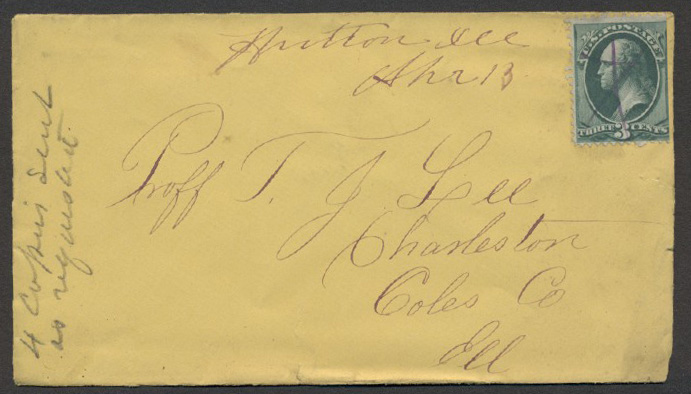 Hutton Ill
Apr 13
U.S. POSTAGE
THREE 3 CENTS
Proff T. J. Lee
Charleston
Coles Co
Ill
4 Copies Sent
as requested